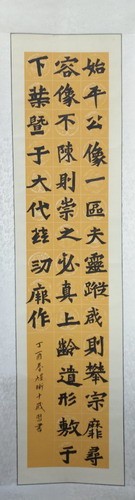 始平公像一區夫靈蹤戓則攀宗靡尋
容像不陳則崇之必真上齡遺形敷于
下葉暨于大代茲功厥作
丁酉春 十歲 書